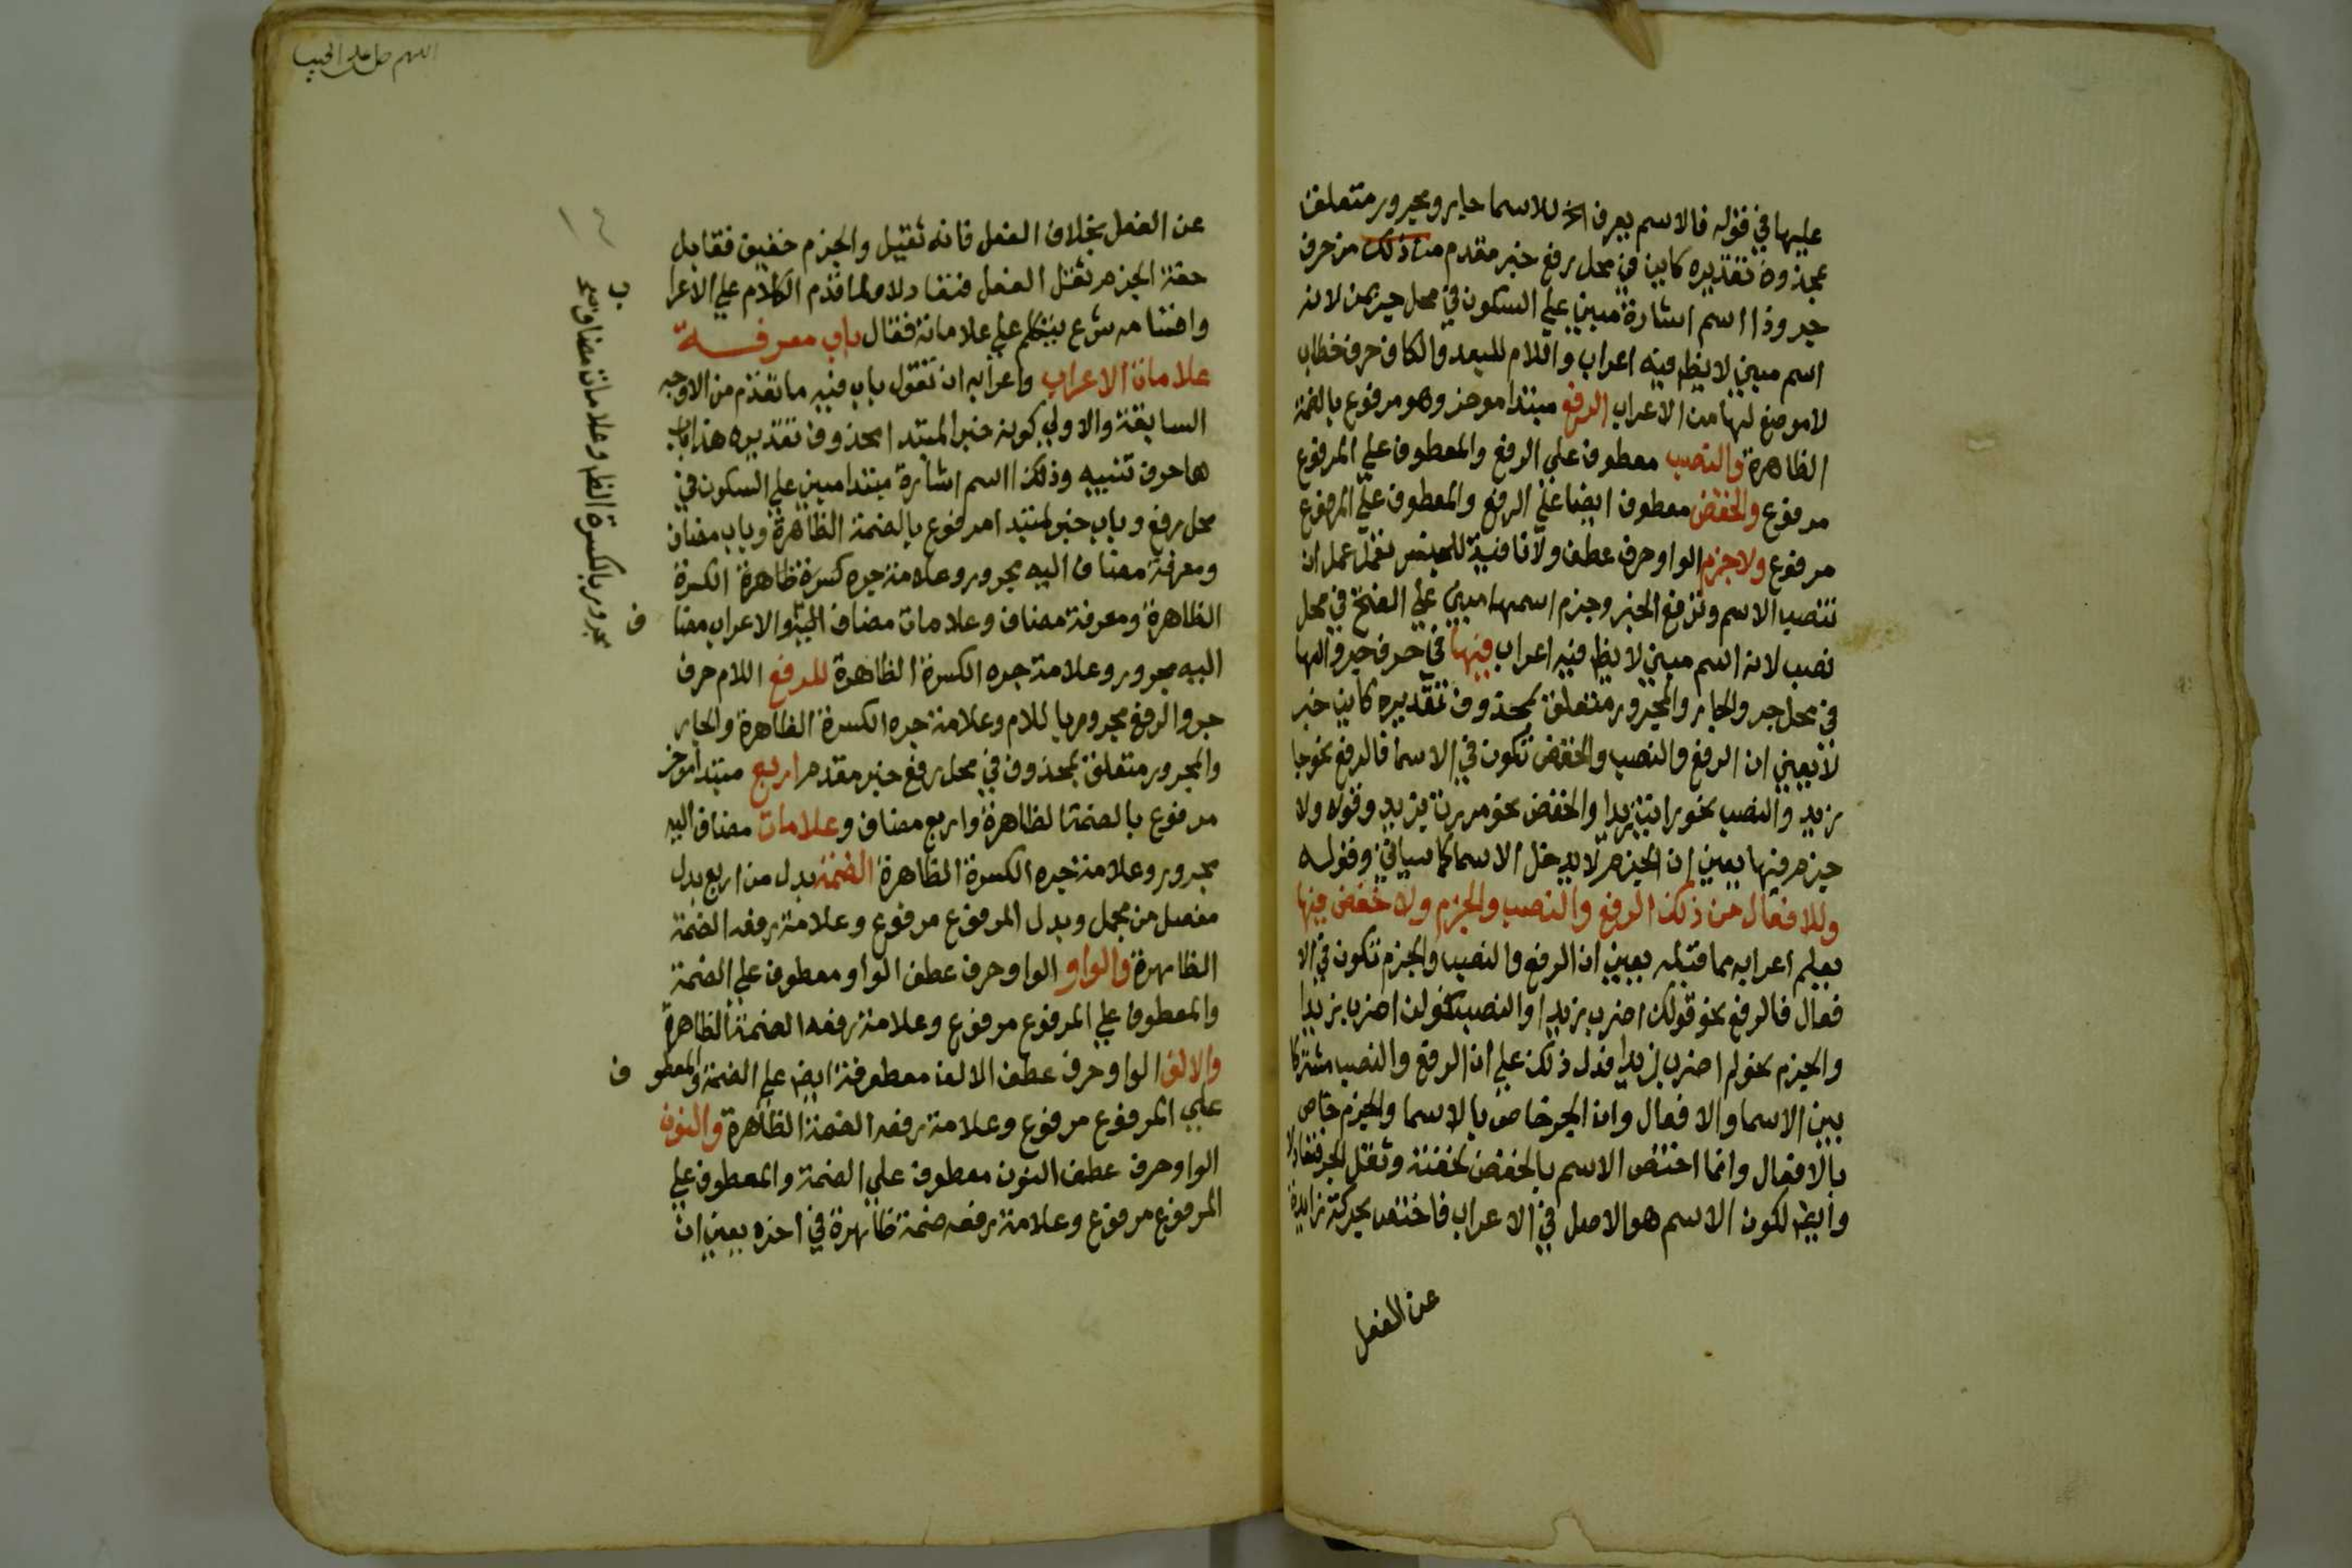 عليها في قوله فالاسم يعرف الخ للاسما جار ومجرور متعلق
بمحذوف تقديره كاين في محل رفع خبر مقدم من ذلك من حرف
جر وذا اسم اشارة مبني علي السكون في محل جر بمن لانه
اسم مبني لا يظهر فيه اعراب واللام للبعد والكاف حرف خطاب
لا موضع لها من الاعراب الرفع مبتدا موخر وهو مرفوع بالضمة
الظاهرة والنصب معطوف علي الرفع والمعطوف علي المرفوع
مرفوع والخفض معطوف ايضا علي الرفع والمعطوف علي المرفوع
مرفوع ولا جزم الواو حرف عطف ولا نافية للجنس تعمل عمل ان
تنصب الاسم وترفع الخبر وجزم اسمها مبني علي الفتح في محل
نصب لانه اسم مبني لا يظهر فيه اعراب فيها في حرف جر والها
في محل جر والجار والمجرور متعلق بمحذوف تقديره كاين خبر
لا يعني ان الرفع والنصب والخفض تكون في الاسما فالرفع نحو جا
زيد والنصب نحو رايت زيدا والخفض نحو مررت بزيد وقوله ولا
جزم فيها يعني ان الجزم لا يدخل الاسما كما سياتي وقوله
وللافعال من ذلك الرفع والنصب والجزم ولا خفض فيها
يعلم اعرابه مما قبله يعني ان الرفع والنصب والجزم تكون في الا
فعال فالرفع نحو قولك اضرب زيدا والنصب كقولك اضرب زيدا
والجزم نحو لم اضرب زيدا فدل ذلك علي ان الرفع والنصب مشتركا
بين الاسما والافعال وان الجر خاص بالاسما والجزم خاص
بالافعال وانما اختص الاسم بالخفض لخفته وثقل الجر فتعادلا
وايضا لكون الاسم هو الاصل في الاعراب فاختص بحركة زايدة
عن الفعل
اللهم صل علي الحبيب
١٤
عن الفعل بخلاف الفعل فانه ثقيل والجزم خفيف فقابل
خفة الجزم ثقل الفعل فتعادلا ولما قدم الكلام علي الاعرا
ب
واقسامه شرع يتكلم علي علاماته فقال باب معرفة
علامات الاعراب واعرابه ان تقول باب فيه ما تقدم من الاوجه
السابقة والاولي كونه خبر المبتدا محذوف تقديره هذا باب
ها حرف تنبيه وذلك اسم اشارة مبتدا مبني علي السكون في
محل رفع وباب خبر لمبتدا مرفوع بالضمة الظاهرة وباب مضاف
ومعرفة مضاف اليه مجرور وعلامة جره كسرة ظاهرة الكسرة
الظاهرة ومعرفة مضاف وعلامات مضاف اليه والاعراب مضا
ف
اليه مجرور وعلامة جره الكسرة الظاهرة للرفع اللام حرف
جر والرفع مجرور باللام وعلامة جره الكسرة الظاهرة والجار
والمجرور متعلق بمحذوف في محل رفع خبر مقدم اربع مبتدا موخر
مرفوع بالضمة الظاهرة واربع مضاف وعلامات مضاف اليه
مجرور وعلامة جره الكسرة الظاهرة الضمة بدل من اربع بدل
مفصل من مجمل وبدل المرفوع مرفوع وعلامة رفعه الضمة
الظاهرة والواو الواو حرف عطف الواو معطوف علي الضمة
والمعطوف علي المرفوع مرفوع وعلامة رفعه الضمة الظاهرة
والالف الواو حرف عطف الالف معطوفة ايضا علي الضمة والمعطو
ف
علي المرفوع مرفوع وعلامة رفعه الضمة الظاهرة والنون
الواو حرف عطف النون معطوف علي الضمة والمعطوف علي
المرفوع مرفوع وعلامة رفعه ضمة ظاهرة في اخره يعني ان
مجرور بالكسرة الظاهرة وعلامات مضاف